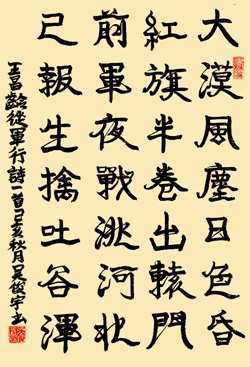 大漠風塵日色昏
紅旗半卷出轅門
前軍夜戰洮河北
已報生擒吐谷渾
王昌齡從軍行詩一首己亥秋月吳俊宇书